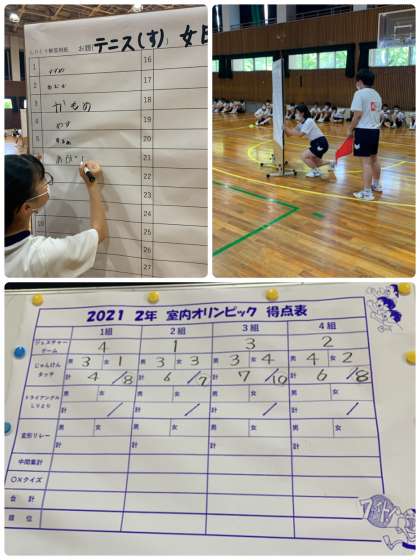 しりとり解答用紙 お題(テニス(す)) 女
1 すずめ 16
2 17
3 かもめ 18
4 やす 19
5 するめ 20
21
22
23
24
10 25
26
27
2021 2年 室内オリンピック 得点表
1組 2組 3組 4組
ジェスチャーゲーム 4 1 3 2
じゃんけんタッチ 男 3 女 1 男 3 女 3 男 3 女 4 男 4 女 2
計 4/8 計 6/7 計 7/10 計 6/8
トライアングルしりとり 男 女 男 女 男 女 男 女
計 / 計 / 計 / 計 /
変形リレー 男 女 男 女 男 女 男 女
計 計 計 計
中間集計
○×クイズ
合計
順位
ファイト!